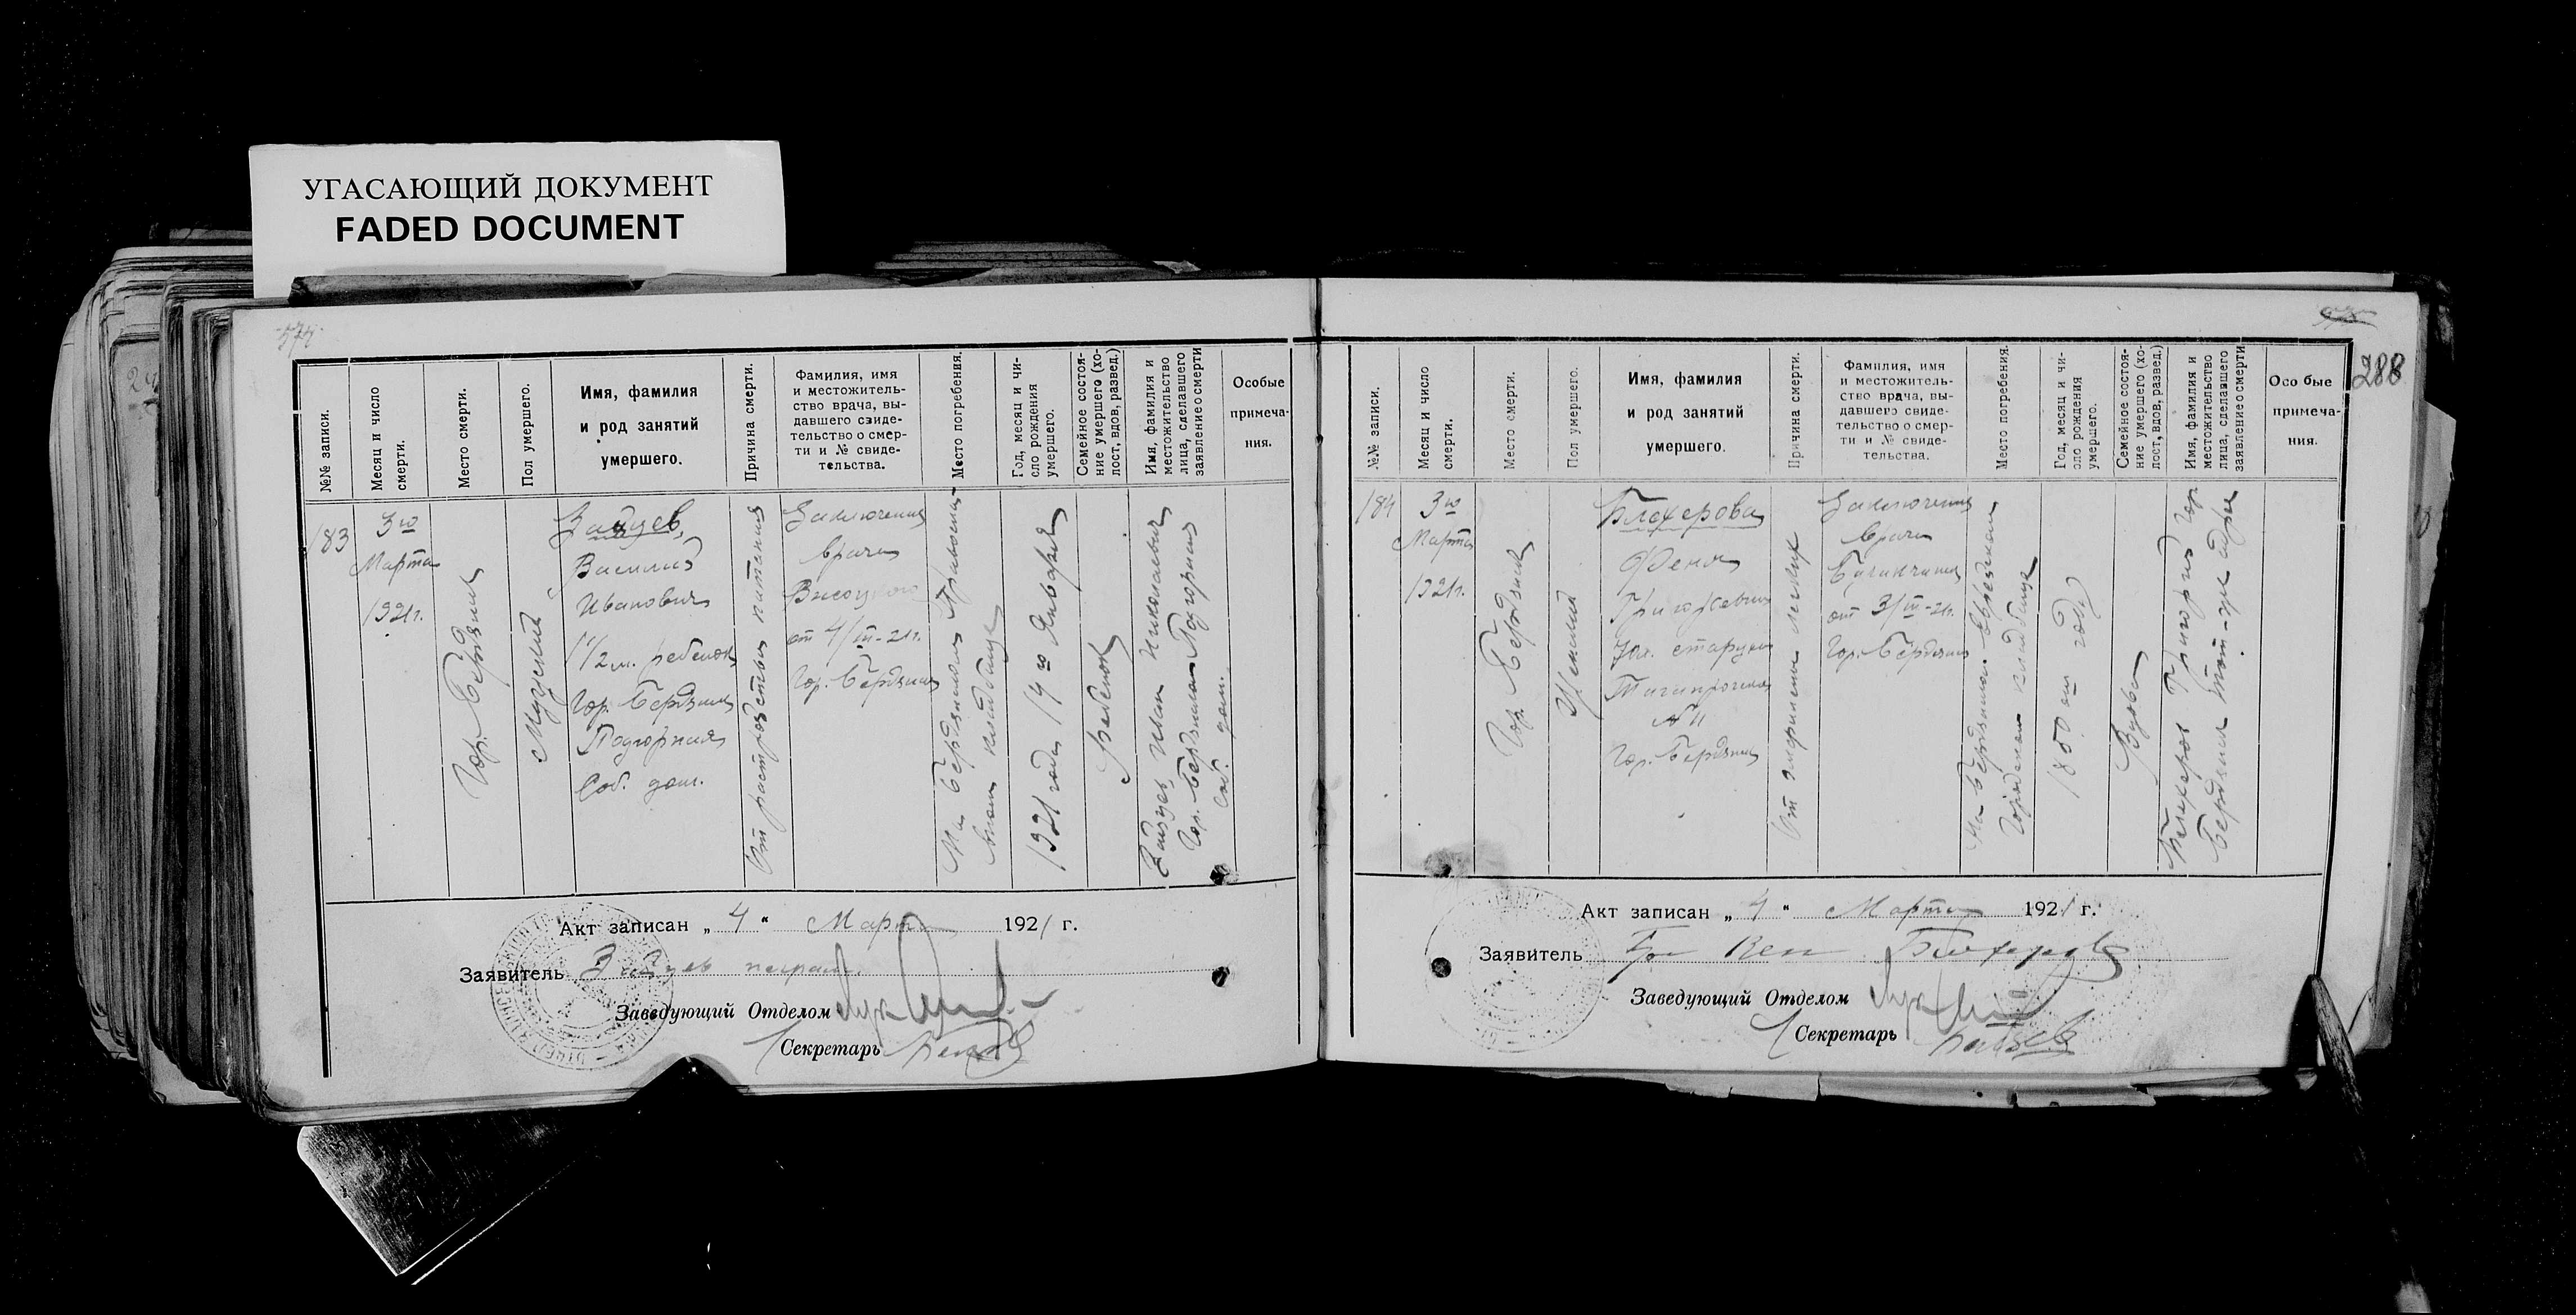 УГАСАЮЩИЙ ДОКУМЕНТ
FADED DOCUMENT
574
№№ записи.
Месяц и число
смерти.
Место смерти.
Пол умершего.
Имя, фамилия
и род занятий
умершего.
Причина смерти.
Фамилия, имя
и местожитель-
ство врача, вы-
давшего свиде-
тельство о смер-
ти и № свиде-
тельства.
Место погребения.
Год, месяц и чи-
сло рождения
умершего.
Семейное состоя-
ние умершего (хо-
лост, вдов, развед.)
Имя, фамилия и
местожительство
лица, сделавшего
заявление о смерти
Особые
примеча-
ния.
183
3го
Марта
1921г.
Гор. Бердянск
Мужской
Зайцев,
Василий
Иванович
1 1/2 м. ребенок
Гор. Бердянск
Подгорная
Соб. дом.
От расстройства питания
Заключение
врача
Высоцкого
от 4/III-21г.
Гор. Бердянск
На Бердянском Православ-
ном кладбище
1921 года 14го Января
Ребенок
Зайцев Иван Николаевич
Гор. Бердянск Подгорная
Соб. дом.
Акт записан „ 4 “ Марта 1921 г.
Заявитель Зайцев
Заведующий Отделом
Секретарь
288
№№ записи.
Месяц и число
смерти.
Место смерти.
Пол умершего.
Имя, фамилия
и род занятий
умершего.
Причина смерти.
Фамилия, имя
и местожитель-
ство врача, вы-
давшего свиде-
тельство о смер-
ти и № свиде-
тельства.
Место погребения.
Год, месяц и чи-
сло рождения
умершего.
Семейное состоя-
ние умершего (хо-
лост, вдов, развед.)
Имя, фамилия и
местожительство
лица, сделавшего
заявление о смерти
Особые
примеча-
ния.
184
3го
Марта
1921г.
Гор. Бердянск
Женский
Блехерова
Феня
Григорьевна
старуха
Таганрогская
№11
Гор. Бердянск
От легких
Заключение
врача
от 3/III-21г.
Гор. Бердянск
На Бердянском Еврейском
Городском кладбище
1850 год
Вдова
Блехеров Григорий Гор.
Бердянск тот-же адрес
Акт записан „ 4 “ Марта 1921 г.
Заявитель Блехеров
Заведующий Отделом
Секретарь